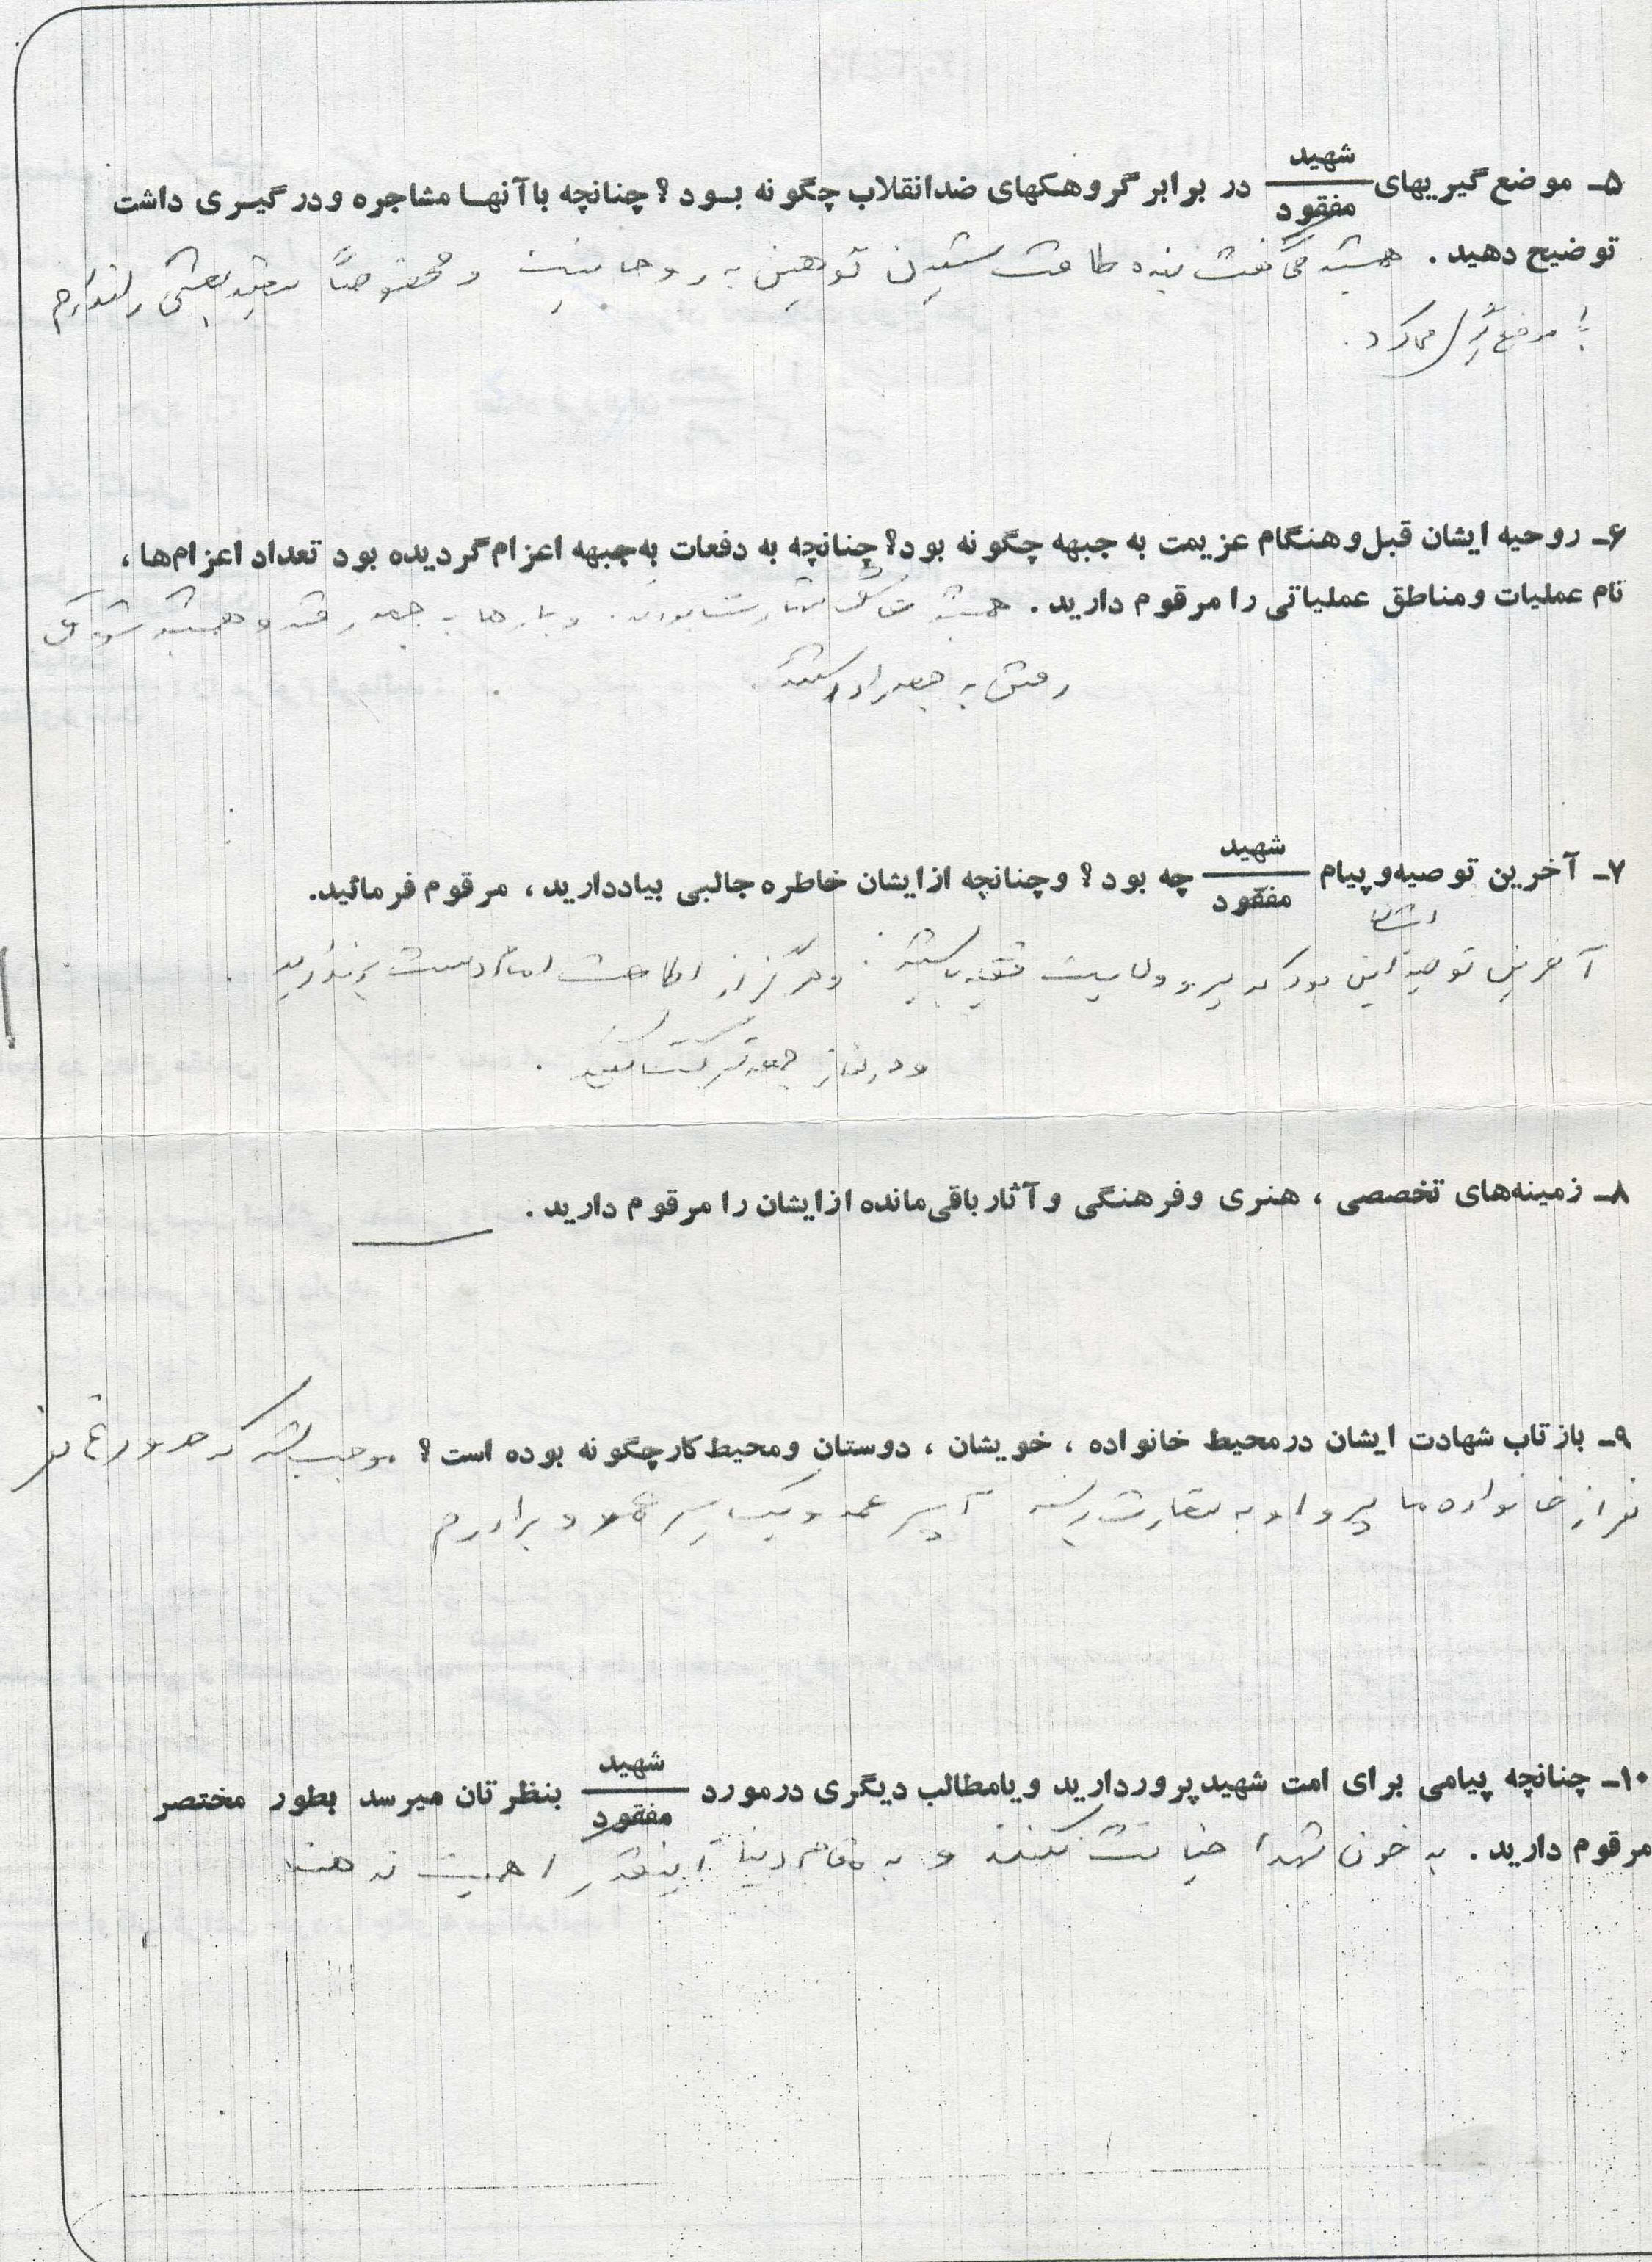 ۵ـ موضع گیریهای شهید / مفقود در برابر گروهکهای ضدانقلاب چگونه بود؟ چنانچه باآنها مشاجره ودرگیری داشت
توضیح دهید. همیشه می‌گفت بنده طاقت شنیدن توهین به روحانیت و مخصوصاً شهید بهشتی را ندارم
موضع‌گیری می‌کرد.
۶ـ روحیه ایشان قبل وهنگام عزیمت به جبهه چگونه بود؟ چنانچه به دفعات به‌جبهه اعزام گردیده بود تعداد اعزام‌ها،
نام عملیات ومناطق عملیاتی را مرقوم دارید. همیشه عاشق شهادت بودند. و بارها به جبهه رفتند و همیشه شوق
رفتن به جبهه را داشتند.
۷ـ آخرین توصیه‌وپیام شهید / مفقود چه بود؟ وچنانچه ازایشان خاطره جالبی بیاددارید، مرقوم فرمائید.
آخرین توصیه ایشان این بود که پیرو ولایت فقیه باشید. و هرگز از اطاعت امام دست برندارید.
و در نماز جمعه شرکت کنید.
۸ـ زمینه‌های تخصصی، هنری وفرهنگی وآثار باقی‌مانده ازایشان را مرقوم دارید.
۹ـ بازتاب شهادت ایشان درمحیط خانواده، خویشان، دوستان ومحیط کار چگونه بوده است؟ موجب شد که
نفر از خانواده ما پیرو او به شهادت رسید پسر عمه و یک پسر عمو و برادرم
۱۰ـ چنانچه پیامی برای امت شهیدپرور دارید ویامطالب دیگری درمورد شهید / مفقود بنظرتان میرسد بطور مختصر
مرقوم دارید. به خون شهدا خیانت نکنند و به مقام دنیا اینقدر اهمیت ندهند